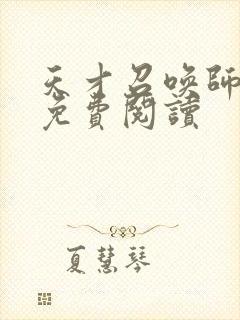 天才召喚師
免費閱讀
夏慧琴